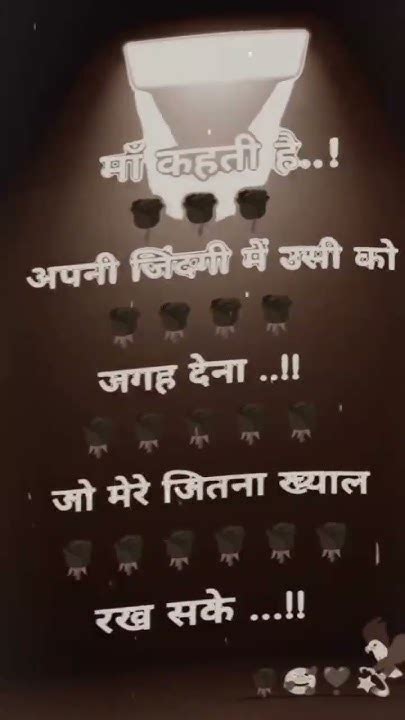 माँ कहती है..!
अपनी जिंदगी में उसी को
जगह देना ..!!
जो मेरे जितना ख्याल
रख सके ...!!